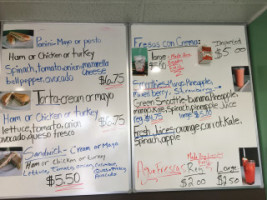 Panini-Mayo or pesto
Ham or Chicken or turkey
Spinach, tomato, onion, mozzarella cheese
bell pepper, avocado $6.75
Torta-cream or mayo
Ham or Chicken or turkey
lettuce, tomato, onion
avocado, queso fresco $6.75
Sandwich-Cream or Mayo
Ham or Chicken or turkey
Lettuce, tomato, onion,
$5.50
Fresas con Crema
large
$5.00
Smoothies-Mango, Pineapple,
Strawberry
Green Smoothie-banana, Pineapple,
Kale, Spinach, apple Juice
Fresh Juices-orange, carrot, Kale,
Spinach, apple
Agua Fresca Reg Large
$2.00 $2.50